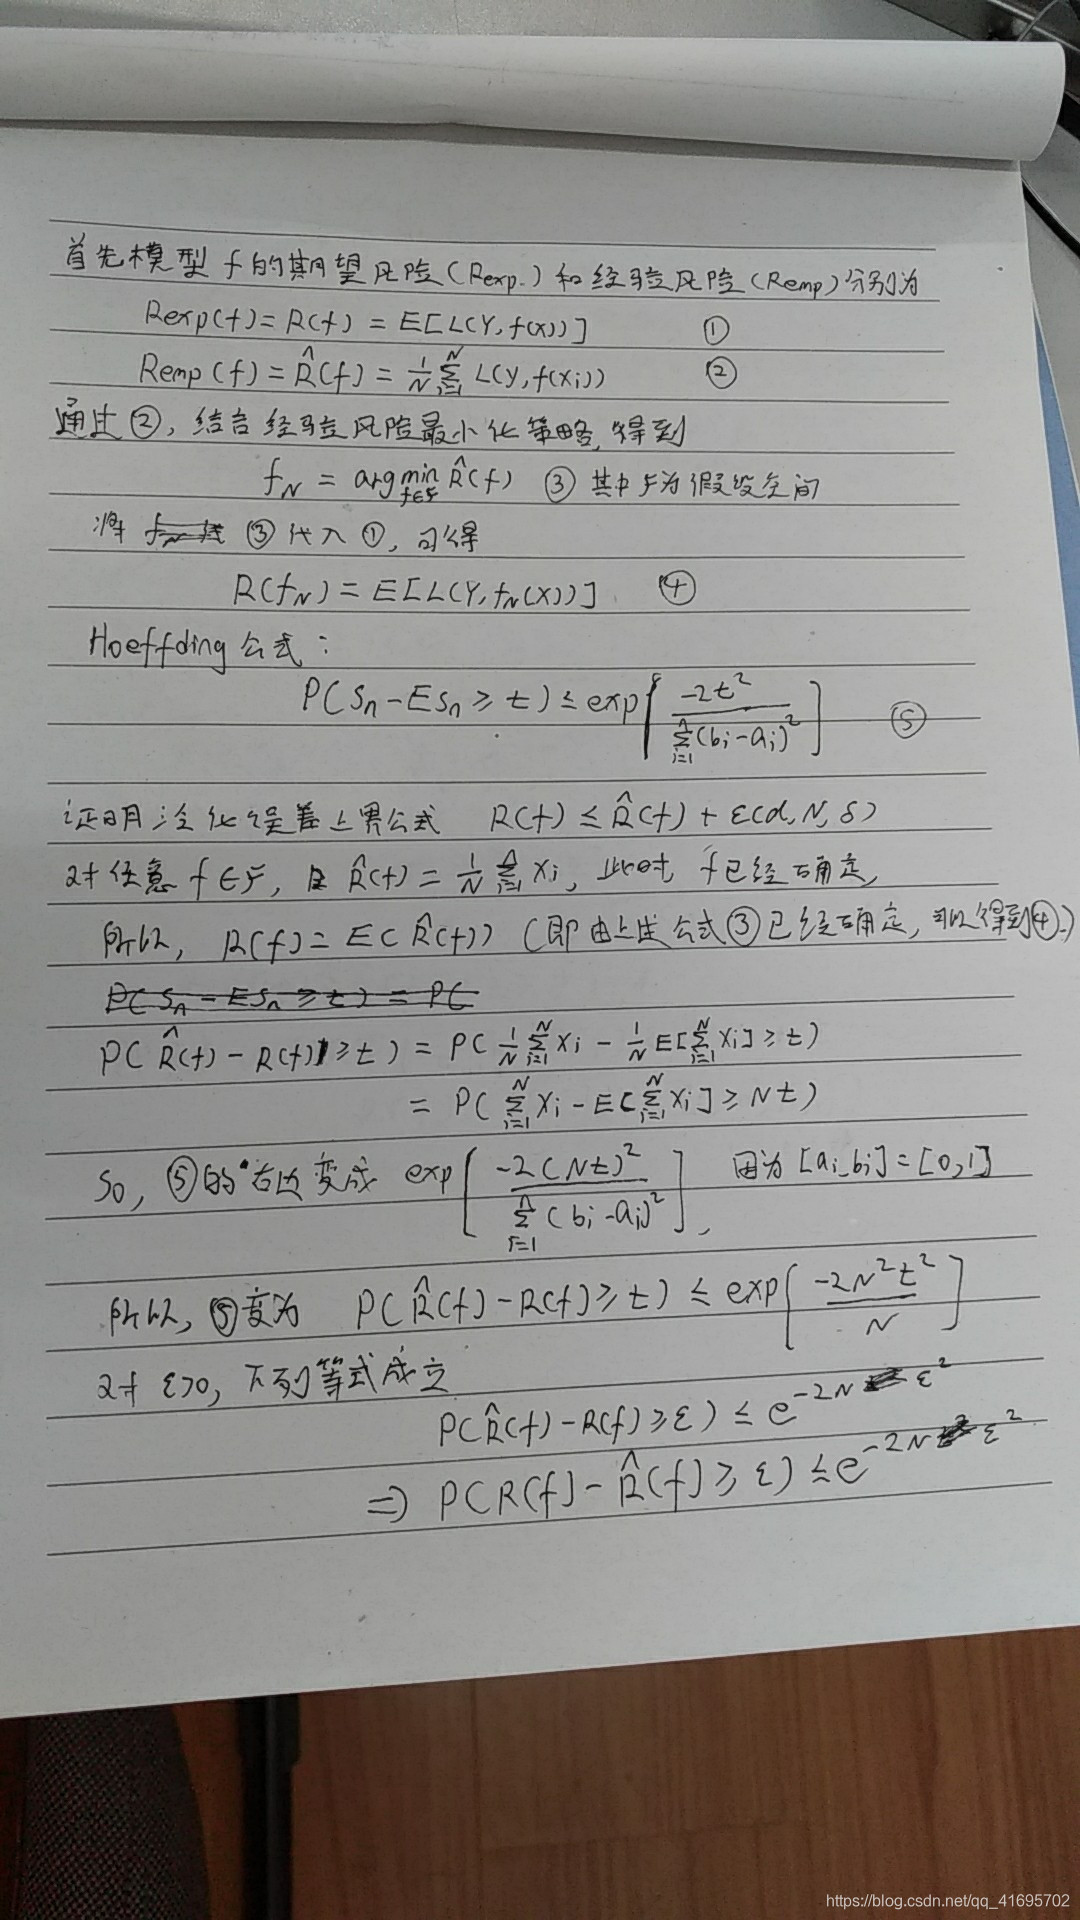 首先模型 f 的期望风险(Rexp.)和经验风险(Remp)分别为
Rexp(f)=R(f) = E[L(Y,f(x))] ①
Remp(f)=R̂(f) = 1/N Σ_{i=1}^{N} L(y,f(xi)) ②
通过②, 结合经验风险最小化策略, 得到
f_N = arg min_{f∈F} R̂(f) ③ 其中F为假设空间
将 ③代入①, 可得
R(f_N) = E[L(Y,f_N(x))] ④
Hoeffding 公式:
P(Sn-ESn ≥ t) ≤ exp[ -2t² / Σ_{i=1}^{n}(bi-ai)² ] ⑤
证明泛化误差上界公式 R(f) ≤ R̂(f) + ε(d,N,δ)
对任意 f∈F, 且 R̂(f) = 1/N Σ_{i=1}^{n} Xi, 此时 f已经确定,
所以, R(f) = E(R̂(f)) (即由上述公式③已经确定, 可以得到④.)
P(Sn - ESn ≥ t) = P(
P(R̂(f) - R(f) ≥ t) = P(1/N Σ_{i=1}^{N} Xi - 1/N E[Σ_{i=1}^{N} Xi] ≥ t)
= P(Σ_{i=1}^{N} Xi - E[Σ_{i=1}^{N} Xi] ≥ Nt)
So, ⑤的右边变成 exp[ -2(Nt)² / Σ_{i=1}^{n}(bi-ai)² ], 因为 [ai,bi]=[0,1]
所以, ⑤变为 P(R̂(f)-R(f) ≥ t) ≤ exp[ -2N²t² / N ]
对 ε>0, 下列等式成立
P(R̂(f)-R(f) ≥ ε) ≤ e^{-2Nε²}
=> P(R(f)-R̂(f) ≥ ε) ≤ e^{-2Nε²}
https://blog.csdn.net/qq_41695702